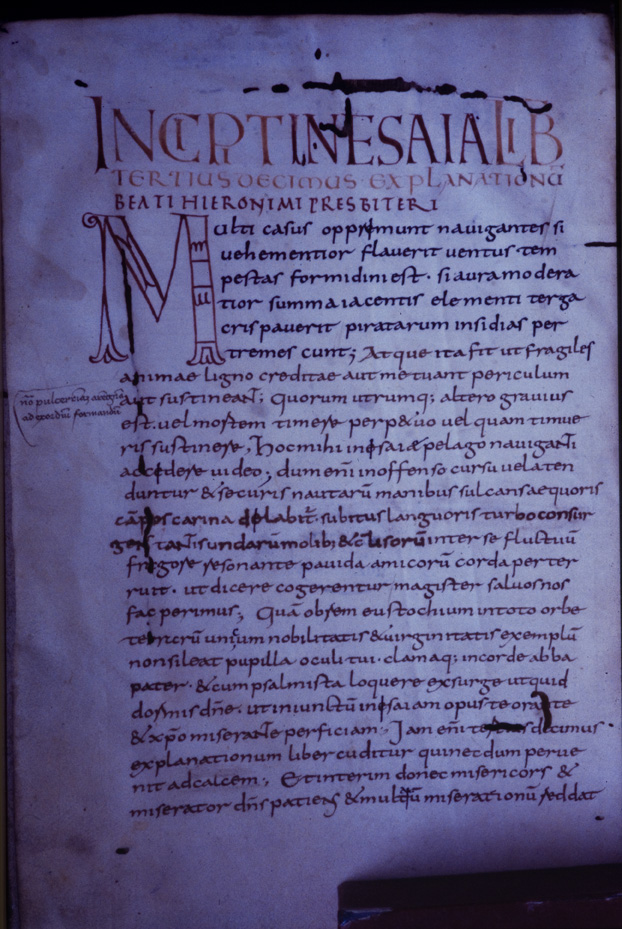 INCIPIT IN ESAIA LIB
TERTIUS DECIMUS EXPLANATIONŪ
BEATI HIERONYMI PRESBITERI
Multi casus opprimunt nauigantes si
uehementior flauerit uentus tem
pestas formidini est. si aura modera
tior summa iacentis elementi terga
crispauerit piratarum insidias per
tremescunt; Atque ita fit ut fragiles
animae ligno creditae aut metuant periculum
aut sustineant; Quorum utrumq; altero grauius
est. uel mortem timere perp&uo uel quam timue
ris sustinere, Hoc mihi in esaiae pelago nauiganti
accedere uideo; dum enī inoffenso cursu uela ten
duntur & securis nautarū manibus sulcans aequoris
campos carina delabit̄. subitus languoris turbo consur
gens tantis undarū molib; & collisorū inter se fluctuū
fragore resonante pauida amicorū corda perter
ruit. ut dicere cogerentur magister saluos nos
fac perimus; Quā obrem eustochium in toto orbe
terrarū unicum nobilitatis & uirginitatis exemplū
non sileat pupilla oculi tui. clamaq; in corde abba
pater. & cum psalmista loquere exsurge ut quid
dormis dn̄e. ut iniunctū in esaiam opus te orante
& xp̄o miserante perficiam; Iam enī decimus
explanationum liber cuditur qui necdum perue
nit ad calcem; Et interim donec misericors &
miserator dn̄s patiens & multarū miserationū reddat
nō pulcer
ad exordiū formandū